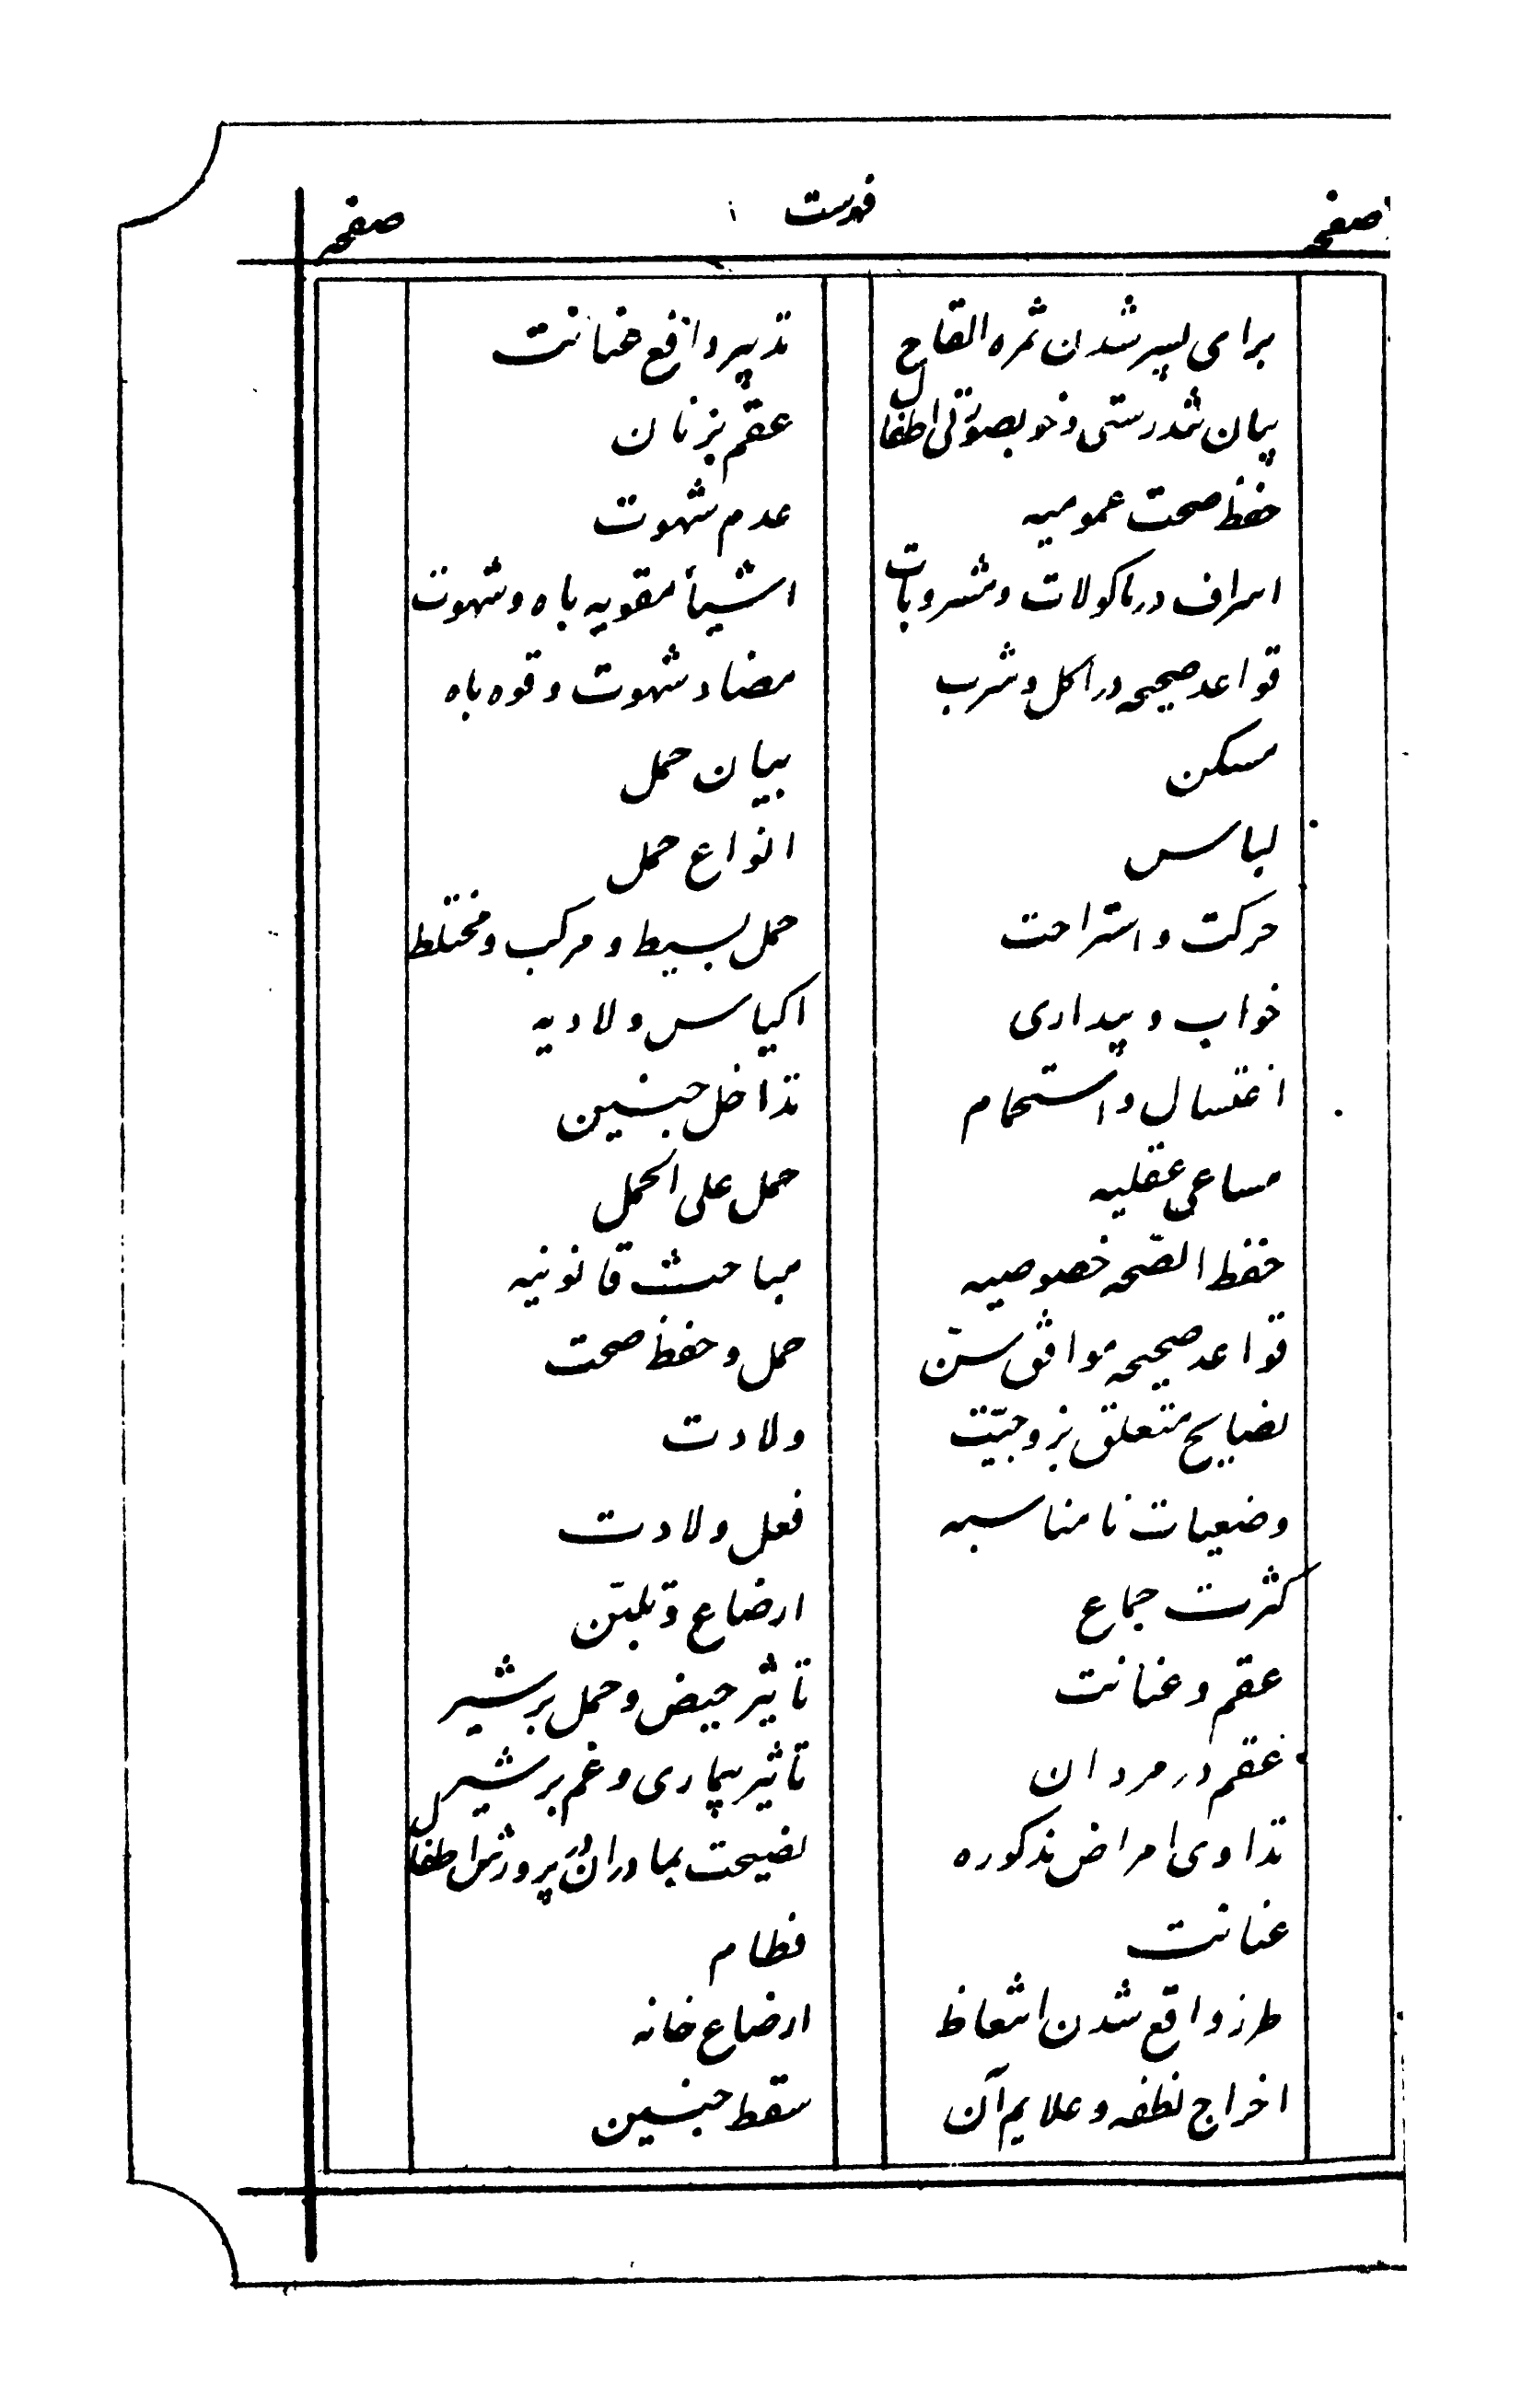 صفحه
فهرست
صفحه
برای پسر شدن ثمره القاح
بیان تندرستی و خوبصورتی اطفال
حفظ صحت عمومیه
اسراف در ماکولات و مشروبات
قواعد صحیحه در اکل و شرب
مسکن
لباس
حرکت و استراحت
خواب و بیداری
اغتسال و استحمام
مساعی عقلیه
حفظ الصّحه خصوصیه
قواعد صحیحه موافق سنّ
نصایح متعلق بزوجیّت
وضعیات نامناسبه
کثرت جماع
عقم و عنانت
عقم در مردان
تداوی امراض مذکوره
عنانت
طرز واقع شدن انتعاظ
اخراج نطفه و علایم آن
تدبیر دافع عنانت
عقم بزنان
عدم شهوت
اشیأ مقویه باه و شهوت
مضاد شهوت و قوه باه
بیان حمل
انواع حمل
حمل بسیط و مرکب و مختلط
اکیاس ولادیه
تداخل جنین
حمل علی الحمل
مباحث قانونیه
حمل و حفظ صحت
ولادت
فعل ولادت
ارضاع و تلبّن
تاثیر حیض و حمل بر شیر
تاثیر بیماری و غم بر شیر
نصیحت بمادران در پرورش اطفال
فطام
ارضاع خانه
سقط جنین